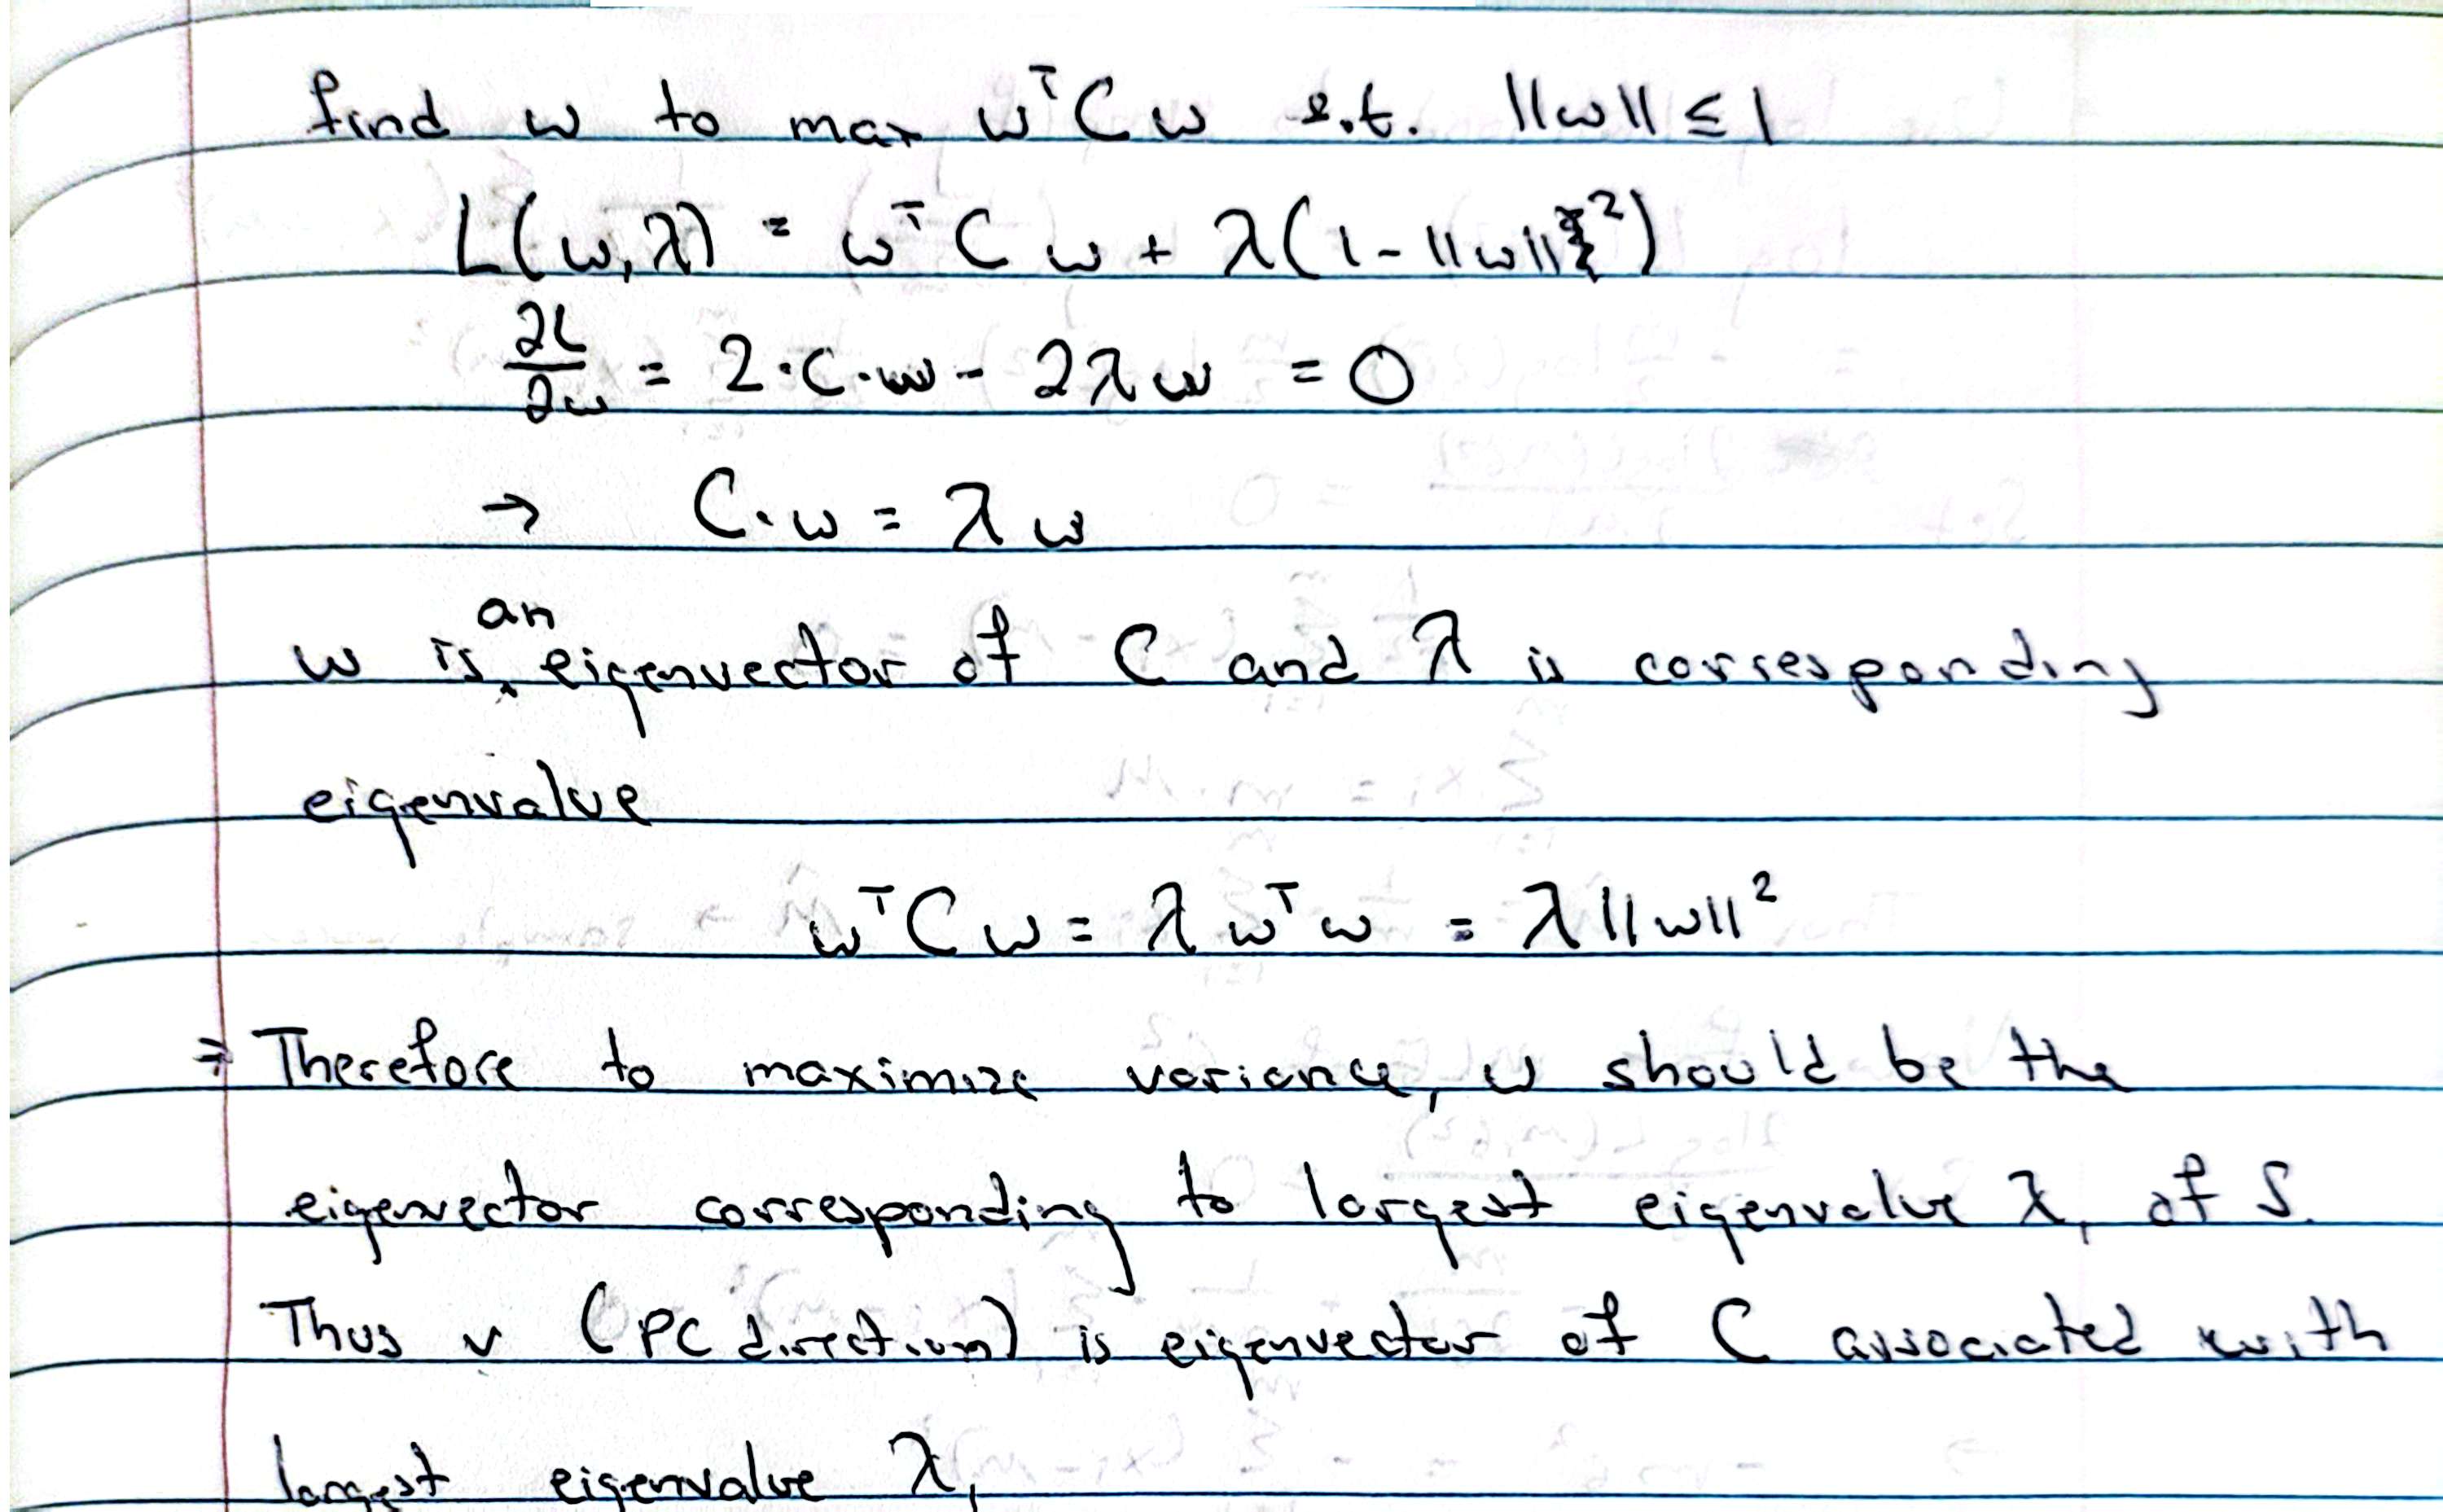 find w to max wᵀCw s.t. ||w|| ≤ 1
L(w,λ) = wᵀCw + λ(1-||w||²)
∂L/∂w = 2·C·w - 2λw = 0
→ C·w = λw
w is an eigenvector of C and λ is corresponding
eigenvalue
wᵀCw = λwᵀw = λ||w||²
⇒ Therefore to maximize variance, w should be the
eigenvector corresponding to largest eigenvalue λ₁ of S.
Thus v (PC direction) is eigenvector of C associated with
largest eigenvalue λ₁